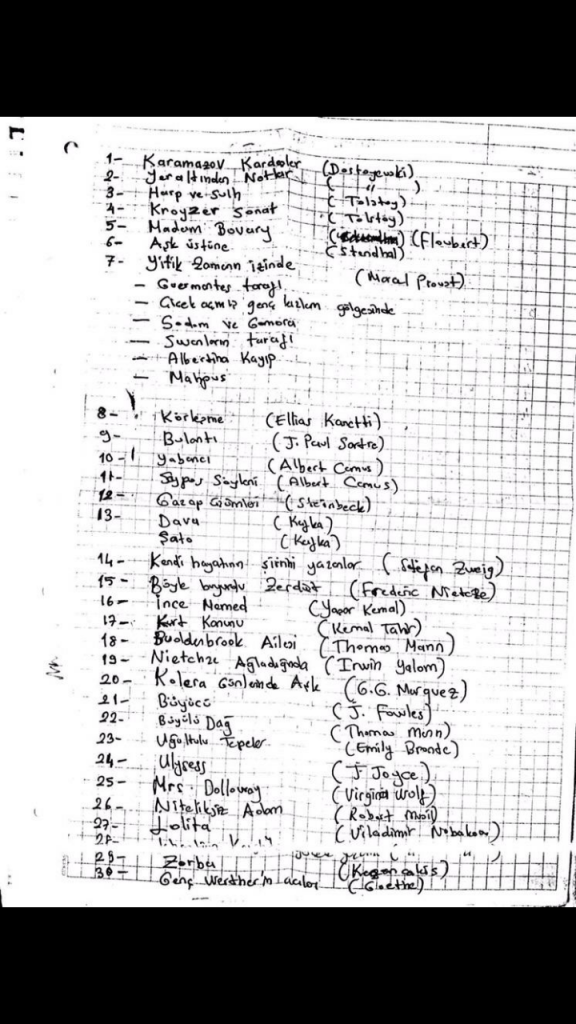 1- Karamazov Kardeşler (Dostoyewski)
2- Yeraltından Notlar ( " )
3- Harp ve Sulh (Tolstoy)
4- Kroyzer Sonat (Tolstoy)
5- Madam Bovary (Flaubert)
6- Aşk üstüne (Stendhal)
7- Yitik Zamanın izinde (Marcel Proust)
— Guermantes tarafı
— Çiçek açmış genç kızların gölgesinde
— Sodom ve Gomora
— Swanların tarafı
— Albertina Kayıp
— Mahpus
8- Körleşme (Ellias Kanetti)
9- Bulantı (J. Paul Sartre)
10- Yabancı (Albert Camus)
11- Söyleni (Albert Camus)
12- Gazap Üzümleri (Steinbeck)
13- Dava (Kafka)
Şato (Kafka)
14- Kendi hayatının şiirini yazanlar (Stefan Zweig)
15- Böyle buyurdu Zerdüşt (Frederic Nietzche)
16- İnce Memed (Yaşar Kemal)
17- Kurt Kanunu (Kemal Tahir)
18- Buddenbrook Ailesi (Thomas Mann)
19- Nietchze Ağladığında (Irwin Yalom)
20- Kolera Günlerinde Aşk (G.G. Marquez)
21- Büyücü (J. Fowles)
22- Büyülü Dağ (Thomas Mann)
23- Uğultulu Tepeler (Emily Bronde)
24- Ulysess (J Joyce)
25- Mrs. Dolloway (Virgina Wolf)
26- Niteliksiz Adam (Robert Musil)
27- Lolita (Viladimir Nabakov)
28-
29- Zorba (Kazancakis)
30- Genç Werther'in acıları (Goethe)